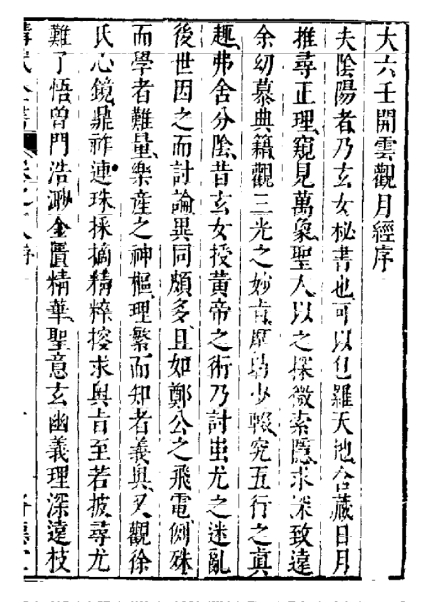 大六壬開雲觀月經序
夫陰陽者乃玄女秘書也可以包羅天地含藏日月
推尋正理窺見萬象聖人以之探微索隱求深致遠
余幼慕典籍觀三光之妙旨靡少輟究五行之真
趣弗舍分陰昔玄女授黃帝之術乃討蚩尤之迷亂
後世因之而討論異同頗多且如鄭公之飛電側珠
而學者難量樂產之神樞理繁而知者義與又觀徐
氏心鏡鼎祚連珠採摘精粹控求奧旨至若披尋尤
難了悟曾門浩渺金匱精華聖意玄幽義理深遠枝